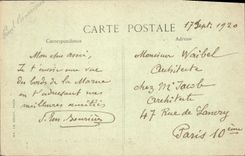 CARTE POSTALE
17 Sept. 1920
Correspondance
Adresse
Mon cher ami,
Je t'envoie une vue
des bords de la Marne
en t'adressant mes
meilleures amitiés
Monsieur Waibel
Architecte
chez Mr Jacob
Architecte
47 Rue de Lancry
Paris 10ème